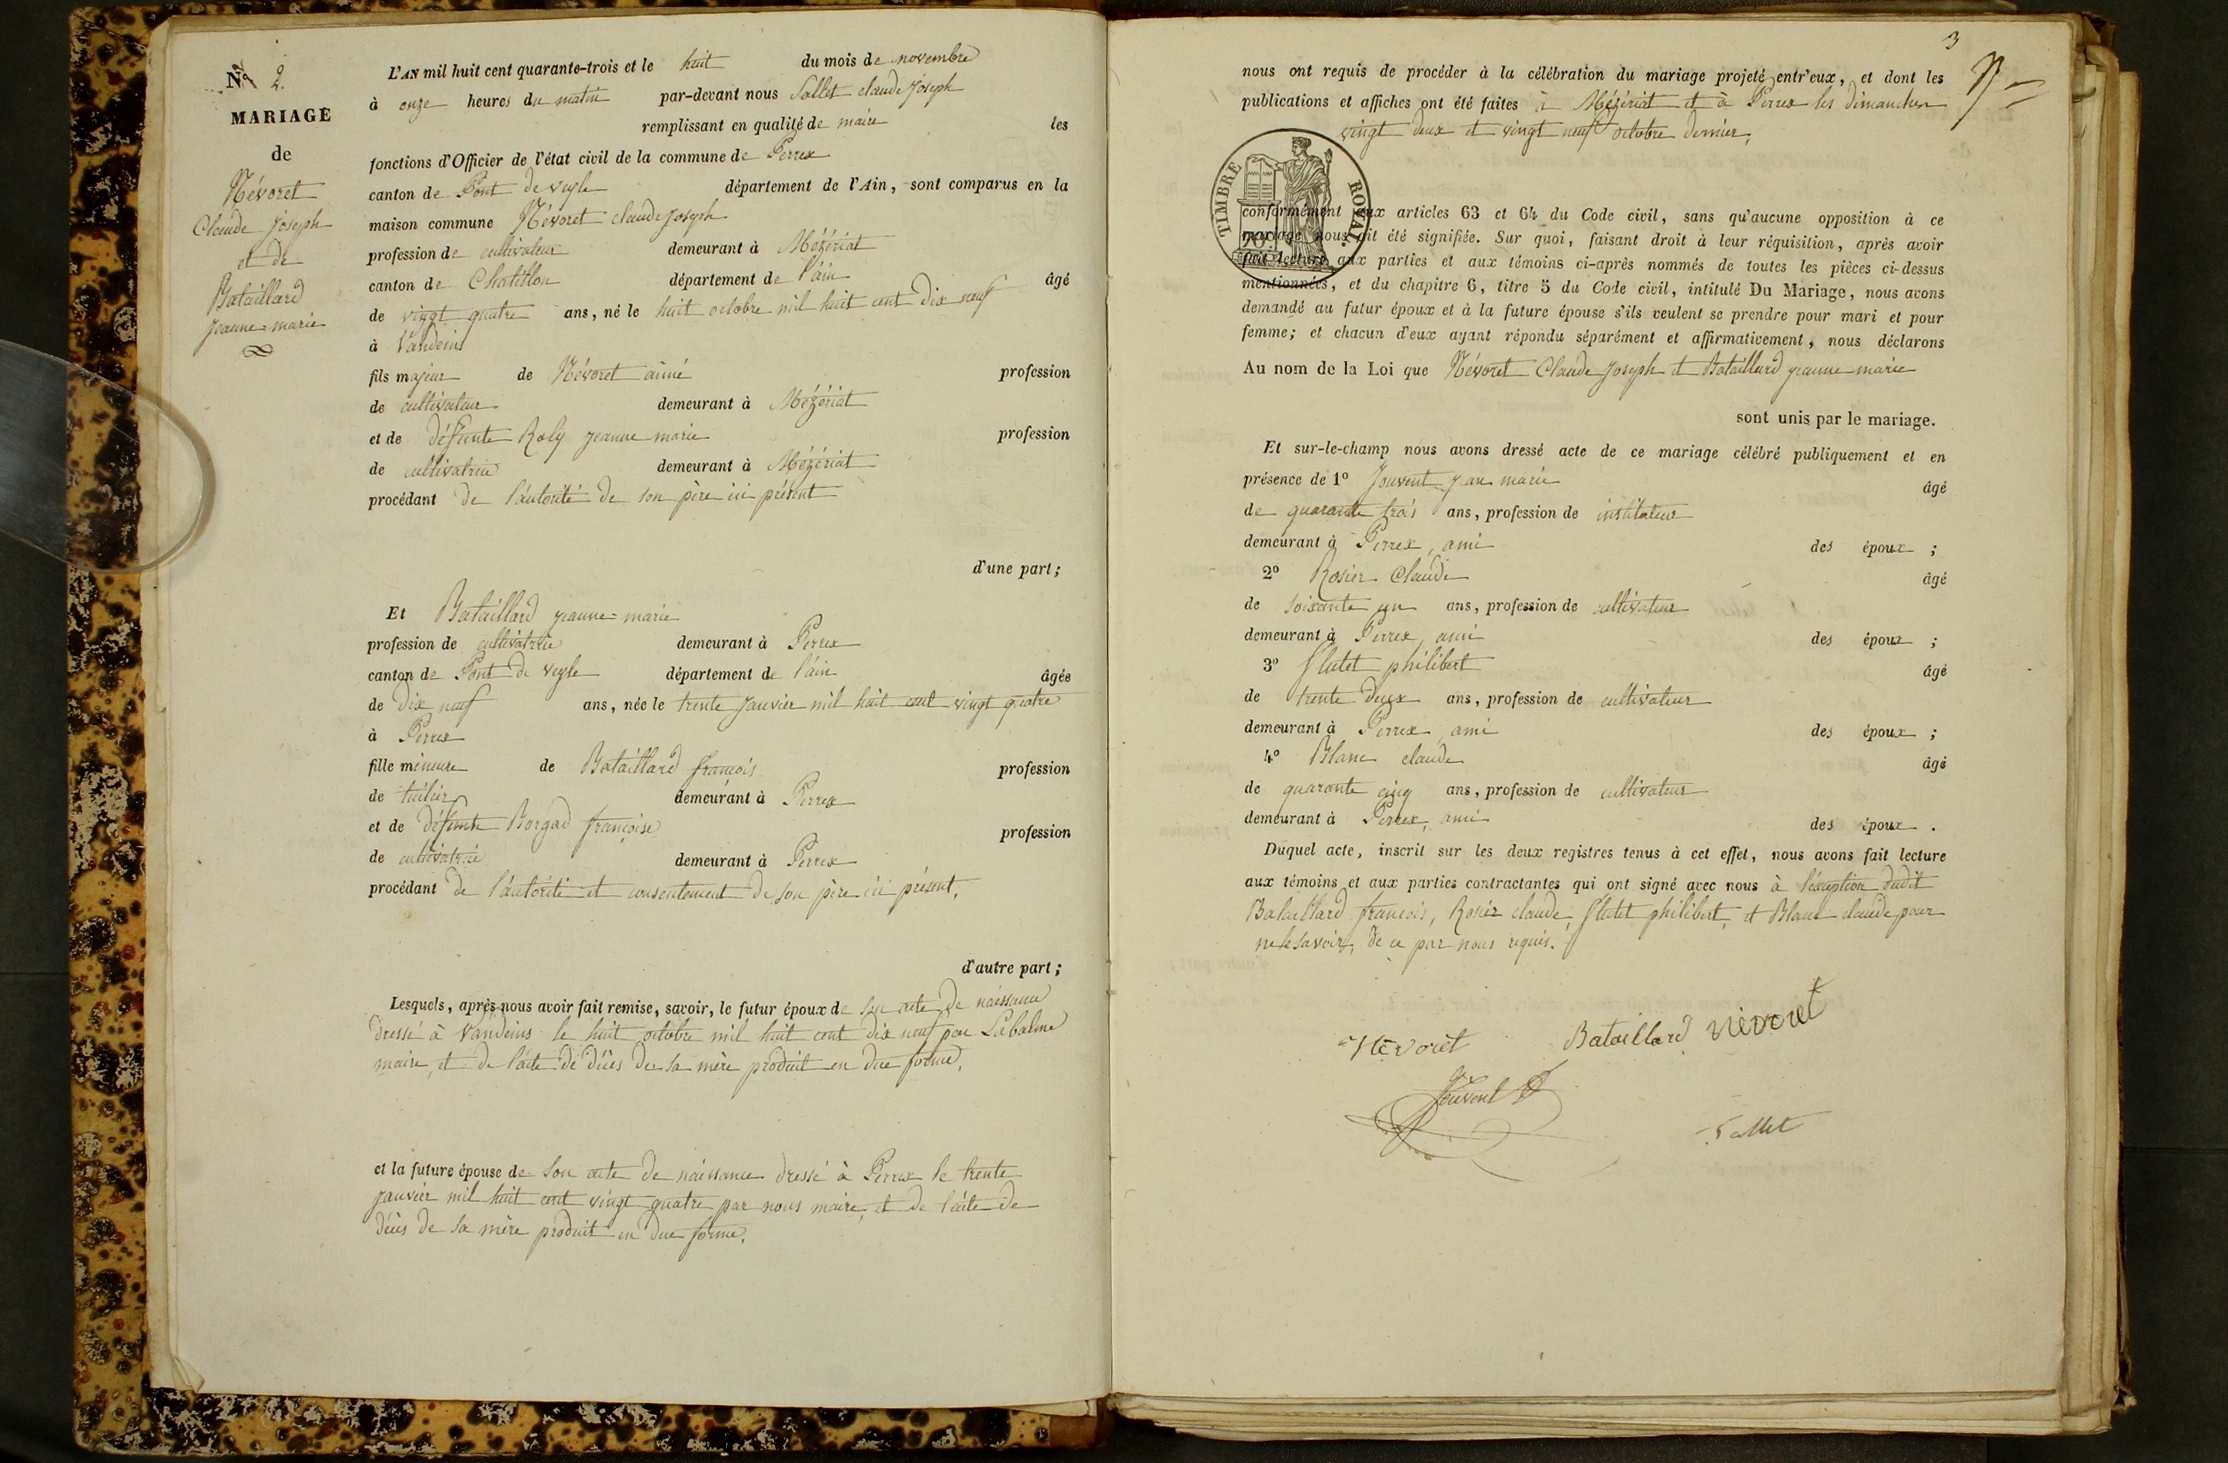 N° 2.
MARIAGE
de
Névoret
Claude Joseph
et de
Bataillard
jeanne-marie
L'AN mil huit cent quarante-trois et le huit du mois de novembre
à onze heures du matin par-devant nous Sallet claude Joseph
remplissant en qualité de maire les
fonctions d'Officier de l'état civil de la commune de Perrex
canton de Pont de veyle département de l'Ain, sont comparus en la
maison commune Névoret claude Joseph
profession de cultivateur demeurant à Mézériat
canton de Chatillon département de l'ain âgé
de vingt quatre ans, né le huit octobre mil huit cent dix neuf
à Vandeins
fils majeur de Névoret aimé profession
de cultivateur demeurant à Mézériat
et de défunte Roly jeanne marie profession
de cultivatrice demeurant à Mézériat
procédant de l'autorité de son père ici présent
d'une part;
Et Bataillard jeanne-marie
profession de cultivatrice demeurant à Perrex
canton de Pont de veyle département de l'ain âgée
de dix neuf ans, née le trente janvier mil huit cent vingt quatre
à Perrex
fille mineure de Bataillard francois profession
de tuilier demeurant à Perrex
et de défunte Borgad françoise profession
de cultivatrice demeurant à Perrex
procédant de l'autorité et consentement de son père ici présent,
d'autre part;
Lesquels, après nous avoir fait remise, savoir, le futur époux de son acte de naissance
dressé à Vandeins le huit octobre mil huit cent dix neuf par Labalme
maire, et de l'acte de décès de sa mère produit en due forme,
et la future épouse de son acte de naissance dressé à Perrex le trente
janvier mil huit cent vingt quatre par nous maire, et de l'acte de
décès de sa mère produit en due forme,
3
nous ont requis de procéder à la célébration du mariage projeté entr'eux, et dont les
publications et affiches ont été faites à Mézériat et à Perrex les dimanches
vingt deux et vingt neuf octobre dernier,
TIMBRE ROYAL.
70
conformément aux articles 63 et 64 du Code civil, sans qu'aucune opposition à ce
mariage nous ait été signifiée. Sur quoi, faisant droit à leur réquisition, après avoir
fait lecture aux parties et aux témoins ci-après nommés de toutes les pièces ci-dessus
mentionnées, et du chapitre 6, titre 5 du Code civil, intitulé Du Mariage, nous avons
demandé au futur époux et à la future épouse s'ils veulent se prendre pour mari et pour
femme; et chacun d'eux ayant répondu séparément et affirmativement, nous déclarons
Au nom de la Loi que Névoret Claude Joseph et Bataillard jeanne-marie
sont unis par le mariage.
Et sur-le-champ nous avons dressé acte de ce mariage célébré publiquement et en
présence de 1° Jouvent jean marie âgé
de quarante trois ans, profession de instituteur
demeurant à Perrex, ami des époux ;
2° Rosier Claude âgé
de soixante un ans, profession de cultivateur
demeurant à Perrex, ami des époux ;
3° flutet philibert âgé
de trente deux ans, profession de cultivateur
demeurant à Perrex, ami des époux ;
4° Blanc claude âgé
de quarante cinq ans, profession de cultivateur
demeurant à Perrex, ami des époux .
Duquel acte, inscrit sur les deux registres tenus à cet effet, nous avons fait lecture
aux témoins et aux parties contractantes qui ont signé avec nous à l'éxception dudit
Bataillard francois, Rosier claude, flutet philibert, et Blanc claude pour
ne le savoir, de ce par nous requis.
Névoret Bataillard Névoret
Jouvent
Sallet